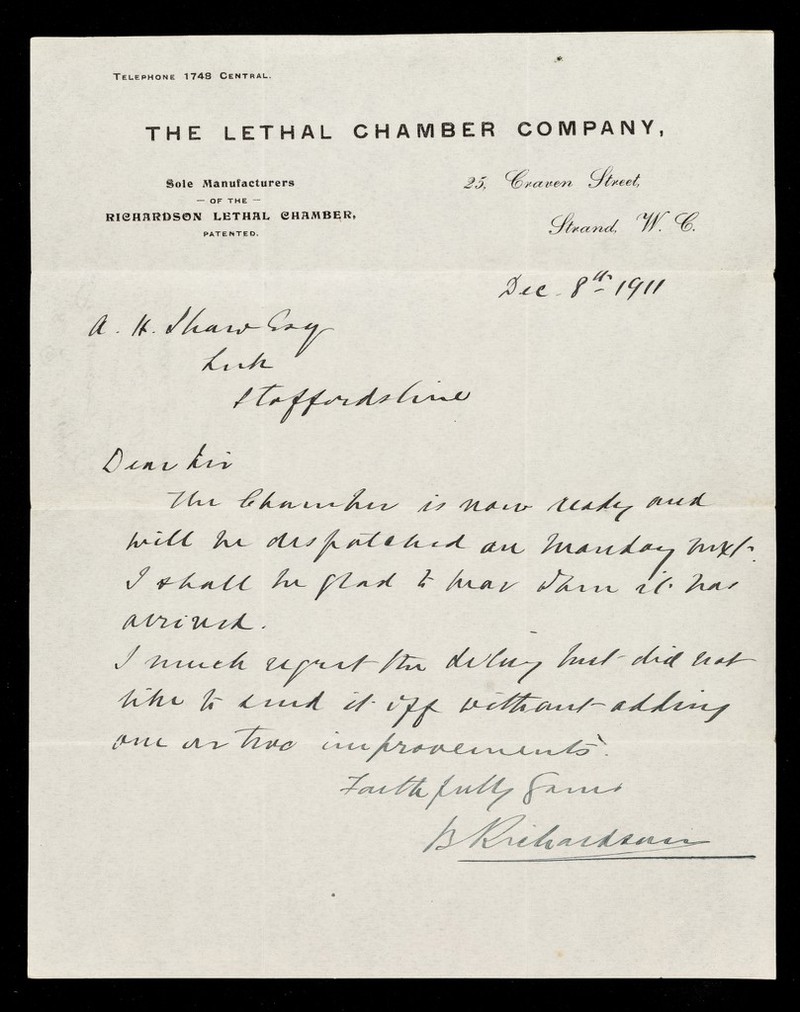 TELEPHONE 1748 CENTRAL.
THE LETHAL CHAMBER COMPANY,
Sole Manufacturers
— OF THE —
RICHARDSON LETHAL CHAMBER,
PATENTED.
25, Craven Street,
Strand, W. C.
Dec. 8th 1911
A. H. Shaw Esq
Leek
Staffordshire
Dear Sir
The Chamber is now ready and
will be despatched on Monday next.
I shall be glad to hear when it has
arrived.
I much regret the delay but did not
like to send it off without adding
one or two improvements.
Faithfully yours
B Richardson